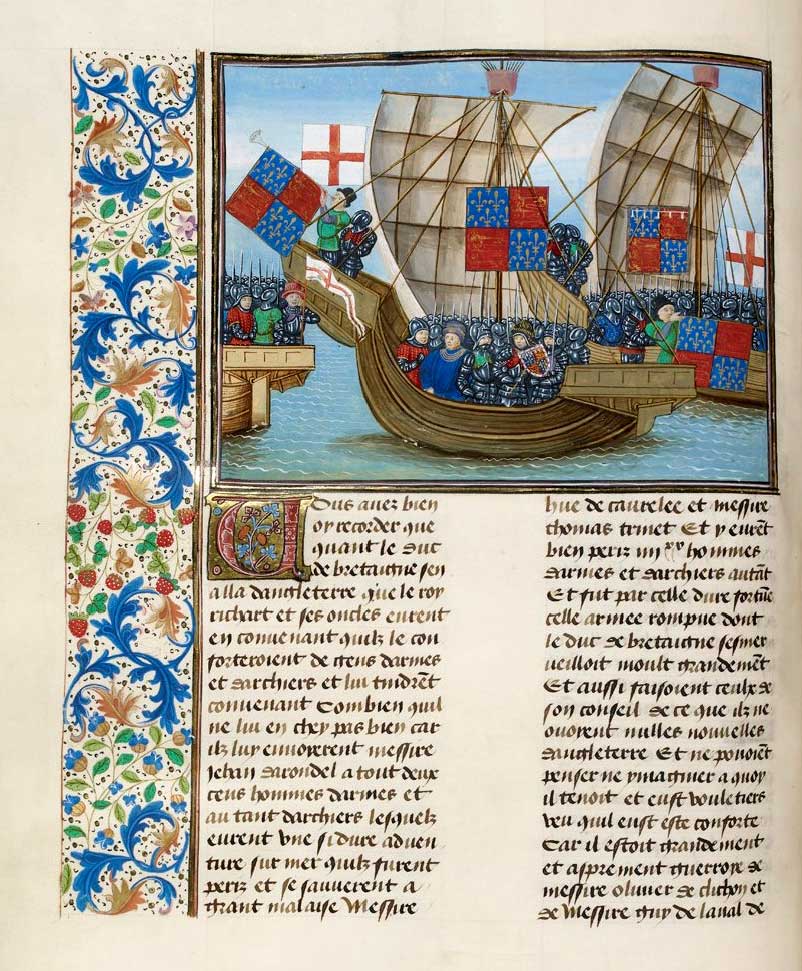 Vous avez bien
oy recorder que
quant le duc
de bretaigne sen
alla dangleterre que le roy
richart et ses oncles eurent
en convenant quilz le con
forteroient de gens darmes
et darchiers et lui tindrent
convenant Combien quil
ne lui en chey pas bien car
ilz luy envoyerent messire
Jehan darondel a tout deux
cens hommes darmes et
au tant darchiers lesquelz
eurent vne si dure aduen
ture sur mer quilz furent
periz et se sauverent a
grant malaise Messire
hue de caurelee et messire
thomas trivet Et y eurent
bien periz iiii xx hommes
darmes et darchiers autant
Et fut par celle dure fortune
celle armee rompue dont
le duc de bretaigne sesmer
veilloit moult grandement
Et aussi faisoient ceulx de
son conseil de ce que ilz ne
ouoient nulles nouvelles
dangleterre Et ne povoient
penser ne ymaginer a quoy
il tenoit et eust voulentiers
veu quil eust este conforte
Car il estoit grandement
et asprement guerroye de
messire olivier de clichon et
de Messire guy de laval de